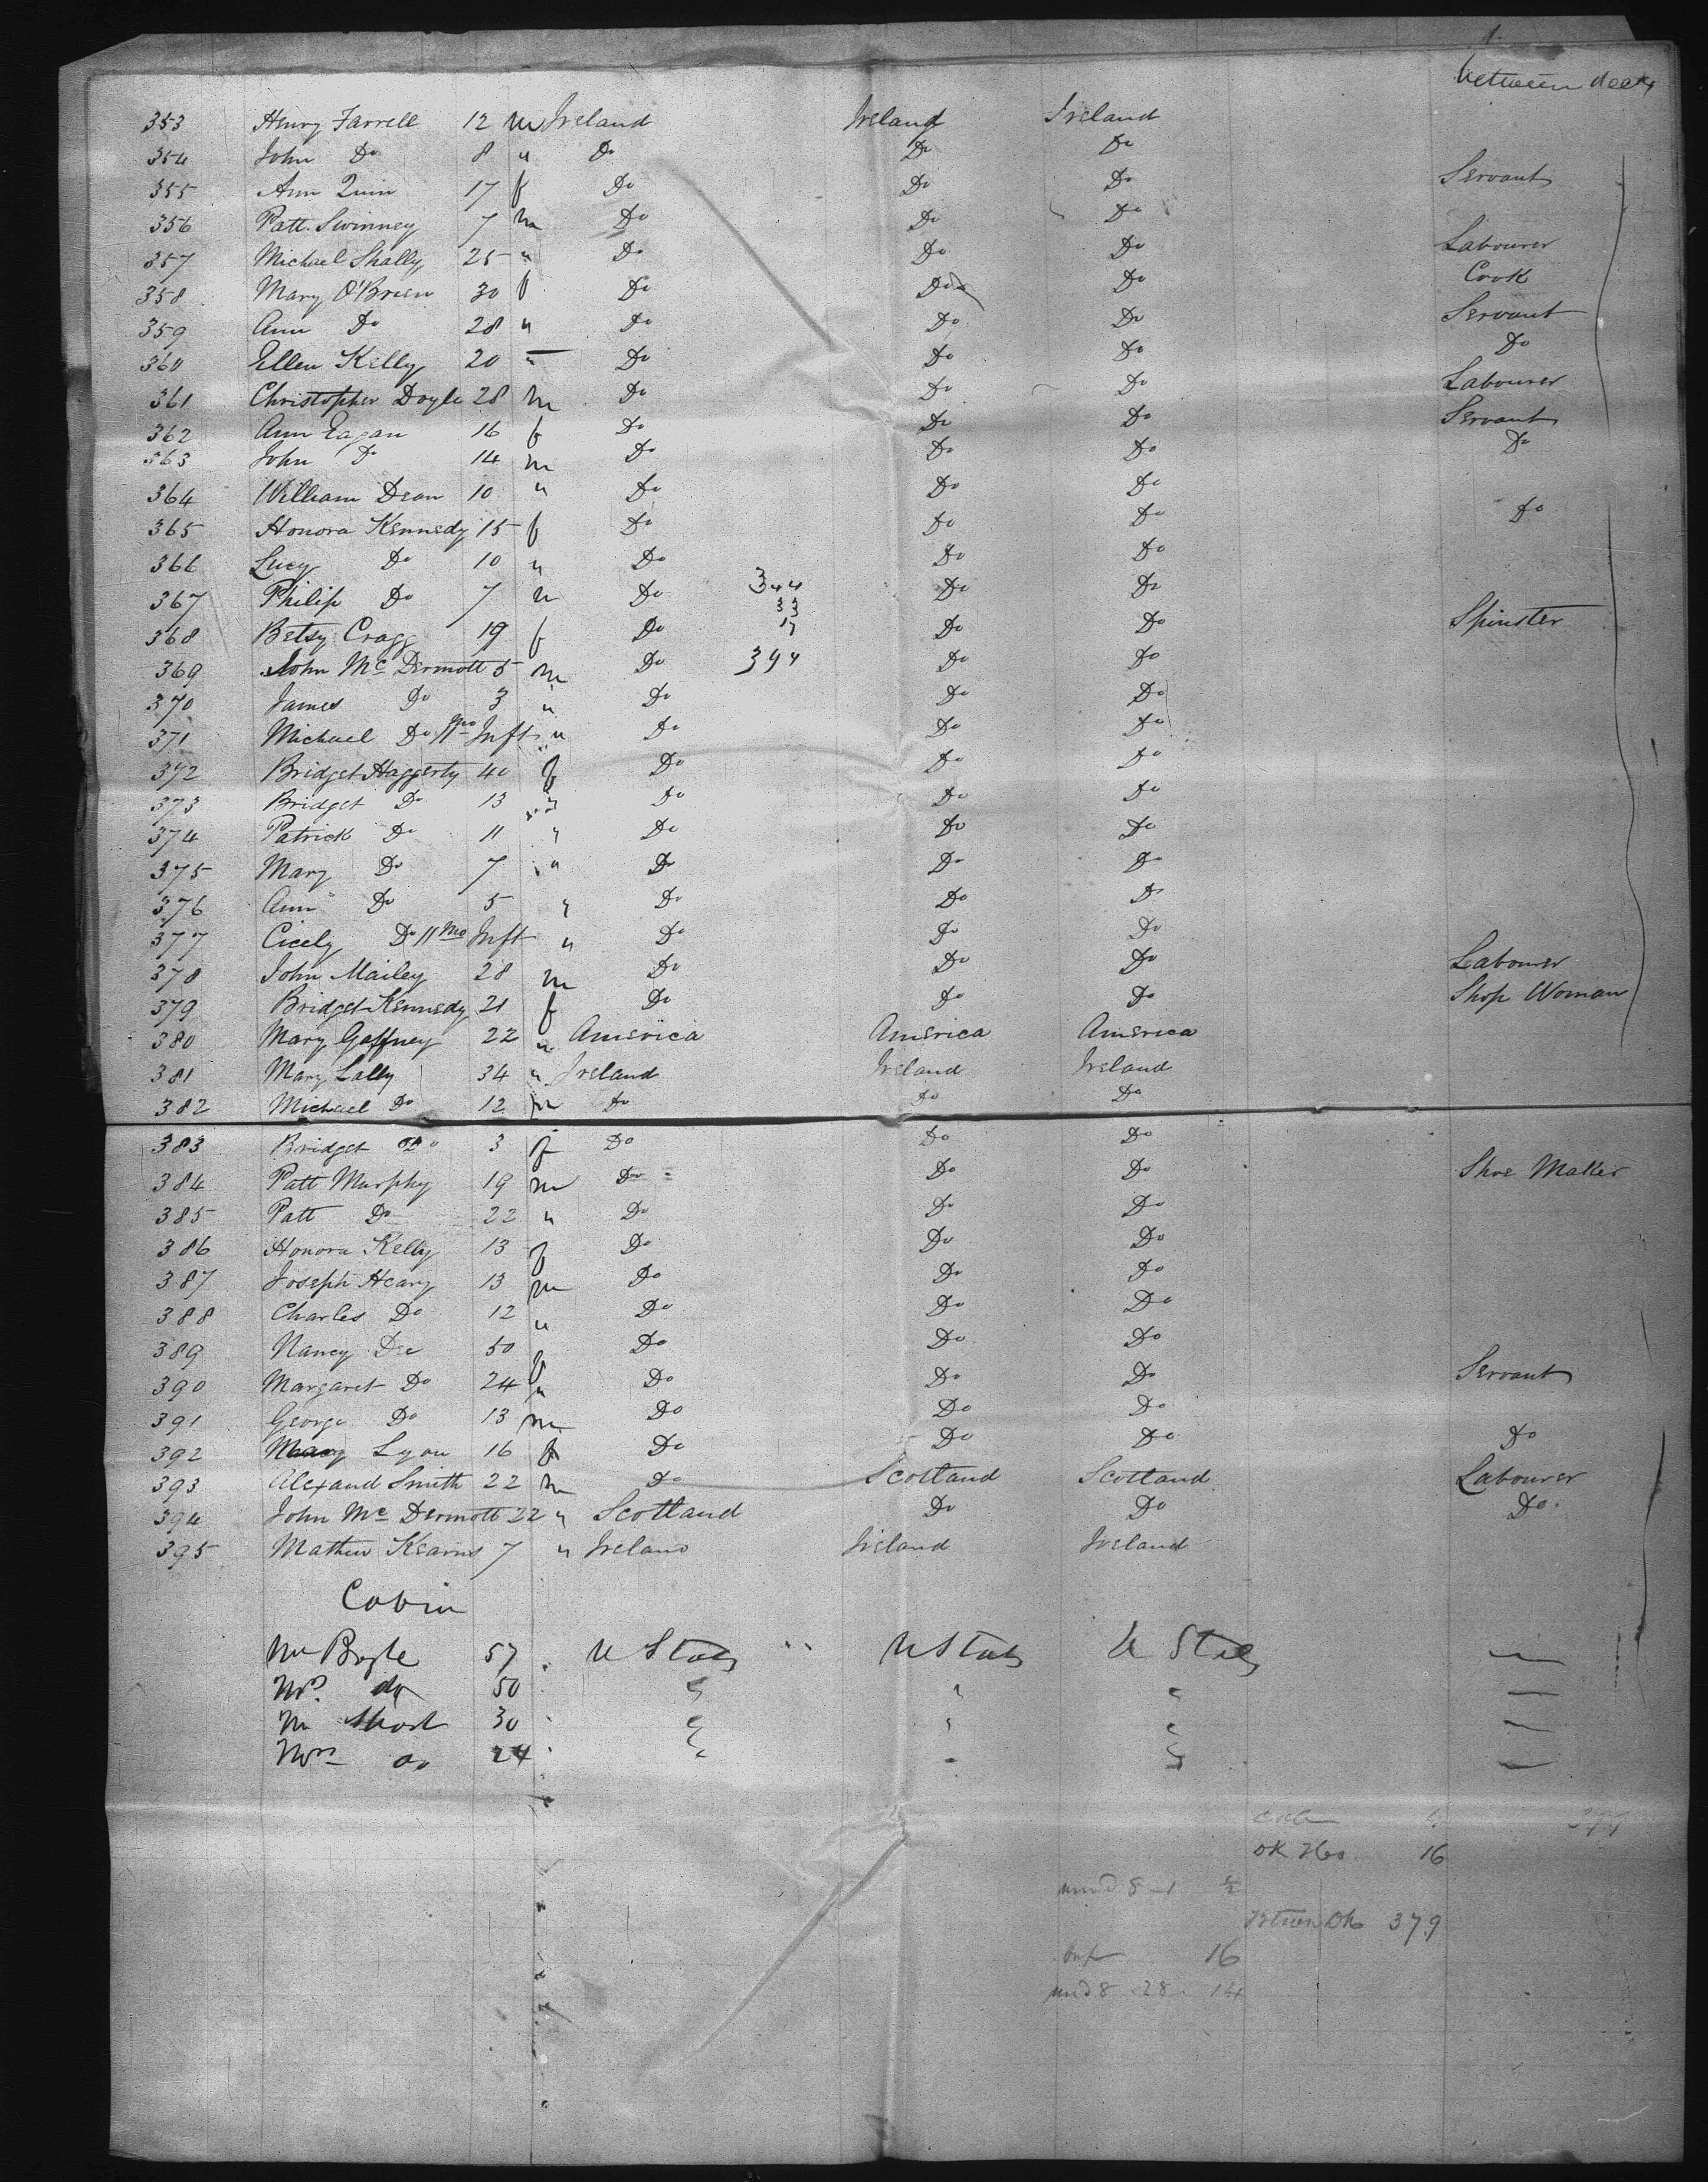 between decks
353 Henry Farrell 12 m Ireland Ireland Ireland
354 John Do 8 " Do Do Do
355 Ann Quin 17 f Do Do Do Servant
356 Patt. Swinney 7 m Do Do Do
357 Michael Skally 25 " Do Do Do Labourer
358 Mary O'Brien 30 f Do Do Do Cook
359 Ann Do 28 " Do Do Do Servant
360 Ellen Kelly 20 " Do Do Do Do
361 Christopher Doyle 28 m Do Do Do Labourer
362 Ann Eagan 16 f Do Do Do Servant
363 John Do 14 m Do Do Do Do
364 William Dean 10 " Do Do Do
365 Honora Kennedy 15 f Do Do Do Do
366 Lucy Do 10 " Do Do Do
367 Philip Do 7 m Do 344 Do Do
33
368 Betsy Cragg 19 f Do 17 Do Do Spinster
369 John Mc Dermott 5 m Do 394 Do Do
370 James Do 3 " Do Do Do
371 Michael Do 11 mo Inft " Do Do Do
372 Bridget Haggerty 40 f Do Do Do
373 Bridget Do 13 " Do Do Do
374 Patrick Do 11 " Do Do Do
375 Mary Do 7 " Do Do Do
376 Ann Do 5 " Do Do Do
377 Cicely Do 11 Mo Inft " Do Do Do
378 John Mailey 28 m Do Do Do Labourer
379 Bridget Kennedy 21 f Do Do Do Shop Woman
380 Mary Gaffney 22 " America America America
381 Mary Lally 34 " Ireland Ireland Ireland
382 Michael Do 12 m Do Do Do
383 Bridget Do 3 f Do Do Do
384 Patt Murphy 19 m Do Do Do Shoe Maker
385 Patt Do 22 " Do Do Do
386 Honora Kelly 13 f Do Do Do
387 Joseph Heary 13 m Do Do Do
388 Charles Do 12 " Do Do Do
389 Nancy Dee 50 f Do Do Do
390 Margaret Do 24 " Do Do Do Servant
391 George Do 13 m Do Do Do
392 Mary Lyon 16 f Do Do Do Do
393 Alexand Smith 22 m Do Scotland Scotland Labourer
394 John Mc Dermott 22 " Scotland Do Do Do
395 Mathew Kearns 7 " Ireland Ireland Ireland
Cabin
Mr Boyle 57 U States U States U States —
Mrs. do 50 " " " —
Mr Short 30 " " " —
Mrs do 24 " " " —
16
und 8 - 1 1/2
379
Inf 16
und 8 . 28 . 14